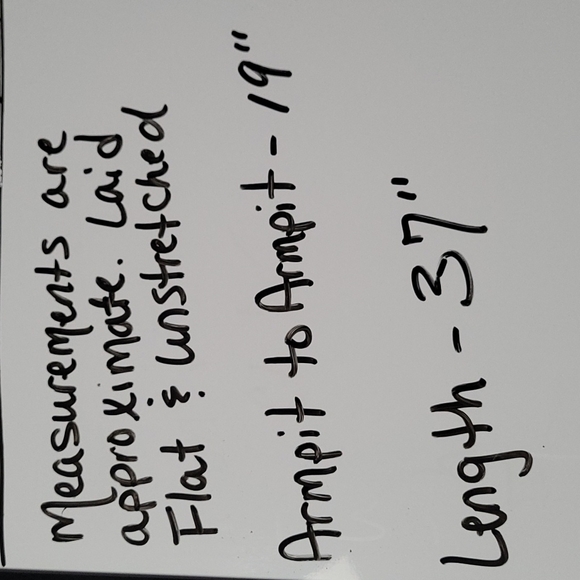 Measurements are
approximate. Laid
Flat & unstretched
Armpit to Armpit - 19"
Length - 37"